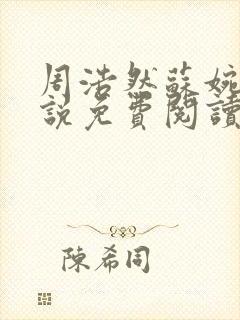 周浩然蘇婉
說免費閱讀
陳希同